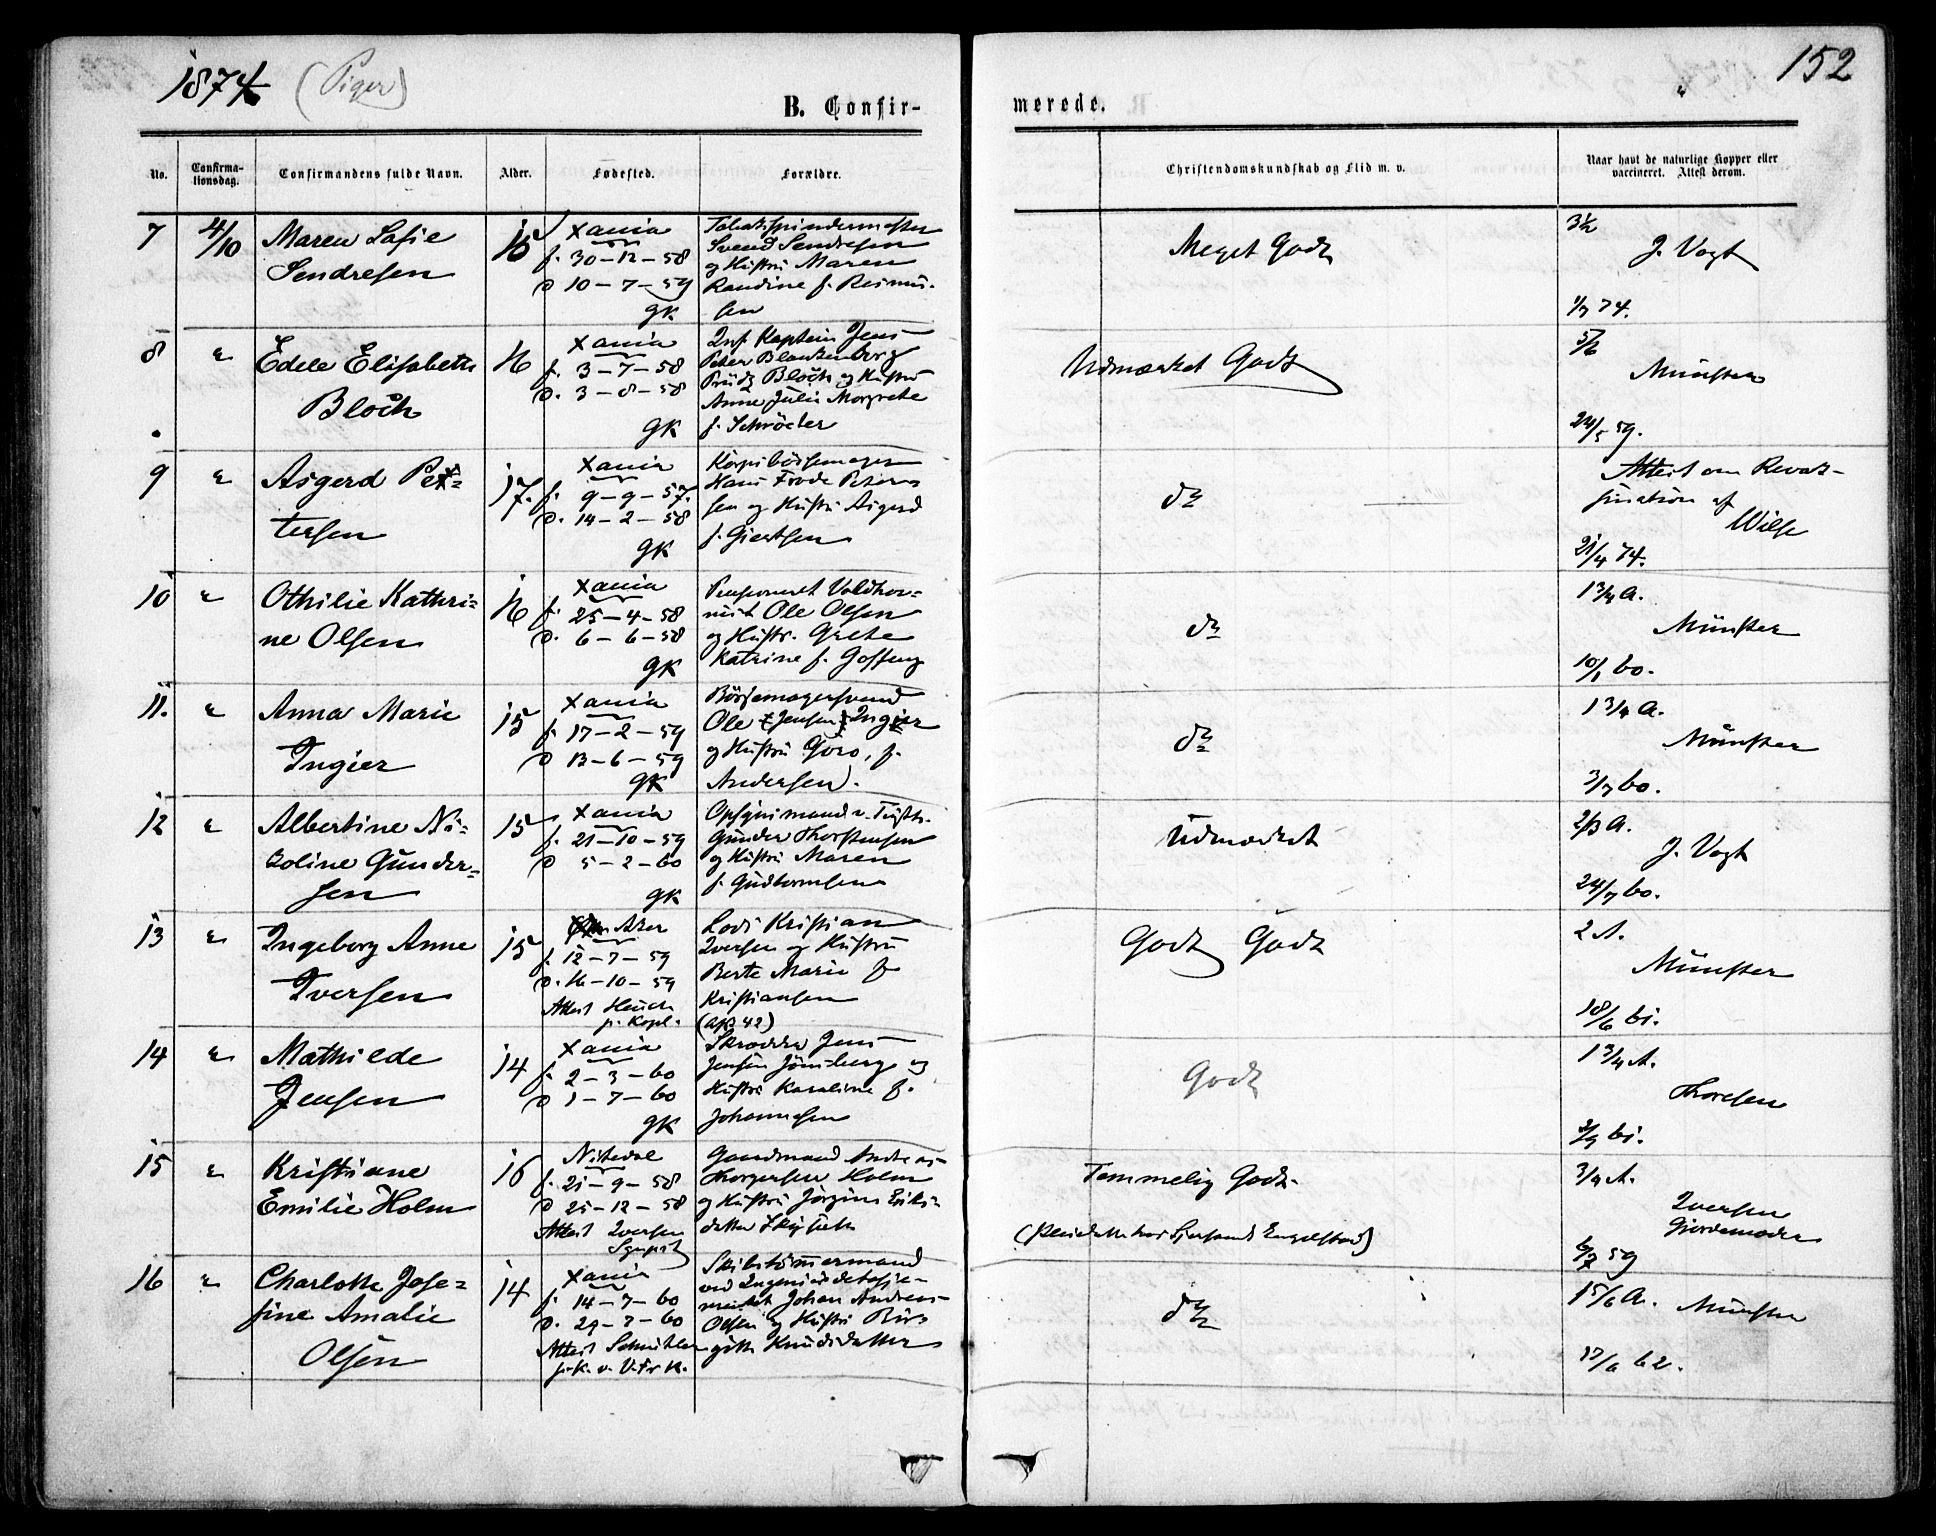 1874 (Piger)
152
B. Confir-
merede.
No.
Confirma-
tionsdag.
Confirmandens fulde Navn.
Alder.
Fødested.
Forældre.
Christendomskundskab og Flid m. v.
Naar havt de naturlige Kopper eller
vaccineret. Attest derom.
7 4/10 Maren Sofie
Sendresen
15
Xania
f. 30-12-58
D 10-7-59
GK
Svend Sendresen
og Hustru Maren
Randine f. Rasmus-
sen
Meget Godt
3½
J. Vogt
1/7 74.
8 " Edele Elisabeth
Bloch
16
Xania
f. 3-7-58
D. 3-8-58
GK
Inf Kaptein Jens
Peter Blankenborg
Prüdz Bloch og Hustru
Anne Julie Margrete
f. Schröder
Udmærket Godt
5/6
Münster
24/5 59.
9 " Asgerd Pet-
tersen
17.
Xania
f. 9-9-57.
D. 14-2-58
GK
Korpsbössemager
Hans Frode Peter-
sen og Hustru Asgerd
f. Giertsen
do
Attest om Revak-
sination af
Wilse
21/4 74.
10 " Othilie Kathri-
ne Olsen
16
Xania
f. 25-4-58
D. 6-6-58
GK
Pensioneret Valdhor-
nist Ole Olsen
og Hustr. Grete
Katrine f. Goffeng
do
1 3/4 A.
Münster
10/1 60.
11. " Anna Marie
Ingier
15
Xania
f. 17-2-59
D 13-6-59
GK
Börsemagersvend
Ole Jensen Ingier
og Hustru Goro, f.
Andersen.
do
1 3/4 A.
Münster
3/7 60.
12 " Albertine Ni-
koline Gunder-
sen
15
Xania
f. 21-10-59
D 5-2-60
GK
Opsynsmand v. Tugth.
Gunder Thorstensen
og Hustru Maren
f. Gudbormsen
Udmærket
2/3 A.
J. Vogt
24/7 60.
13 " Ingeborg Anne
Iversen
15
Aker
f. 12-7-59
D. 16-10-59
Attest Heuch
p. Kapl.
Lods Kristian
Iversen og Hustru
Berte Marie f.
Kristiansen
Godt Godt
2 A.
Münster
18/6 61.
14 " Mathilde
Jensen
14
Xania
f. 2-3-60
D 1-7-60
GK
Skrædder Jens
Jensen Jönsberg og
Hustru Karoline f.
Johannesen
Godt
1 3/4 A.
Thoresen
2/9 61.
15 " Kristiane
Emilie Holm
16
Nitedal
f. 21-9-58
D 25-12-58
Attest Iversen
Sgnprst
Gaardmand Andreas
Thorgersen Holm
og Hustru Jörgine Eriks-
datter
Temmelig Godt.
(Pleiedatter hos Engelstad)
3/4 A.
Iversen
Gjordemoder
6/7 59
16 " Charlotte Jose-
fine Amalie
Olsen
14
Xania
f. 14-7-60
Skibstömmermand
ved Ingeniördetasje-
mentet Johan Andreas
Olsen og Hustru Bir-
gitte Knudsdatter
do
15/6 A. Münster
17/6 62.